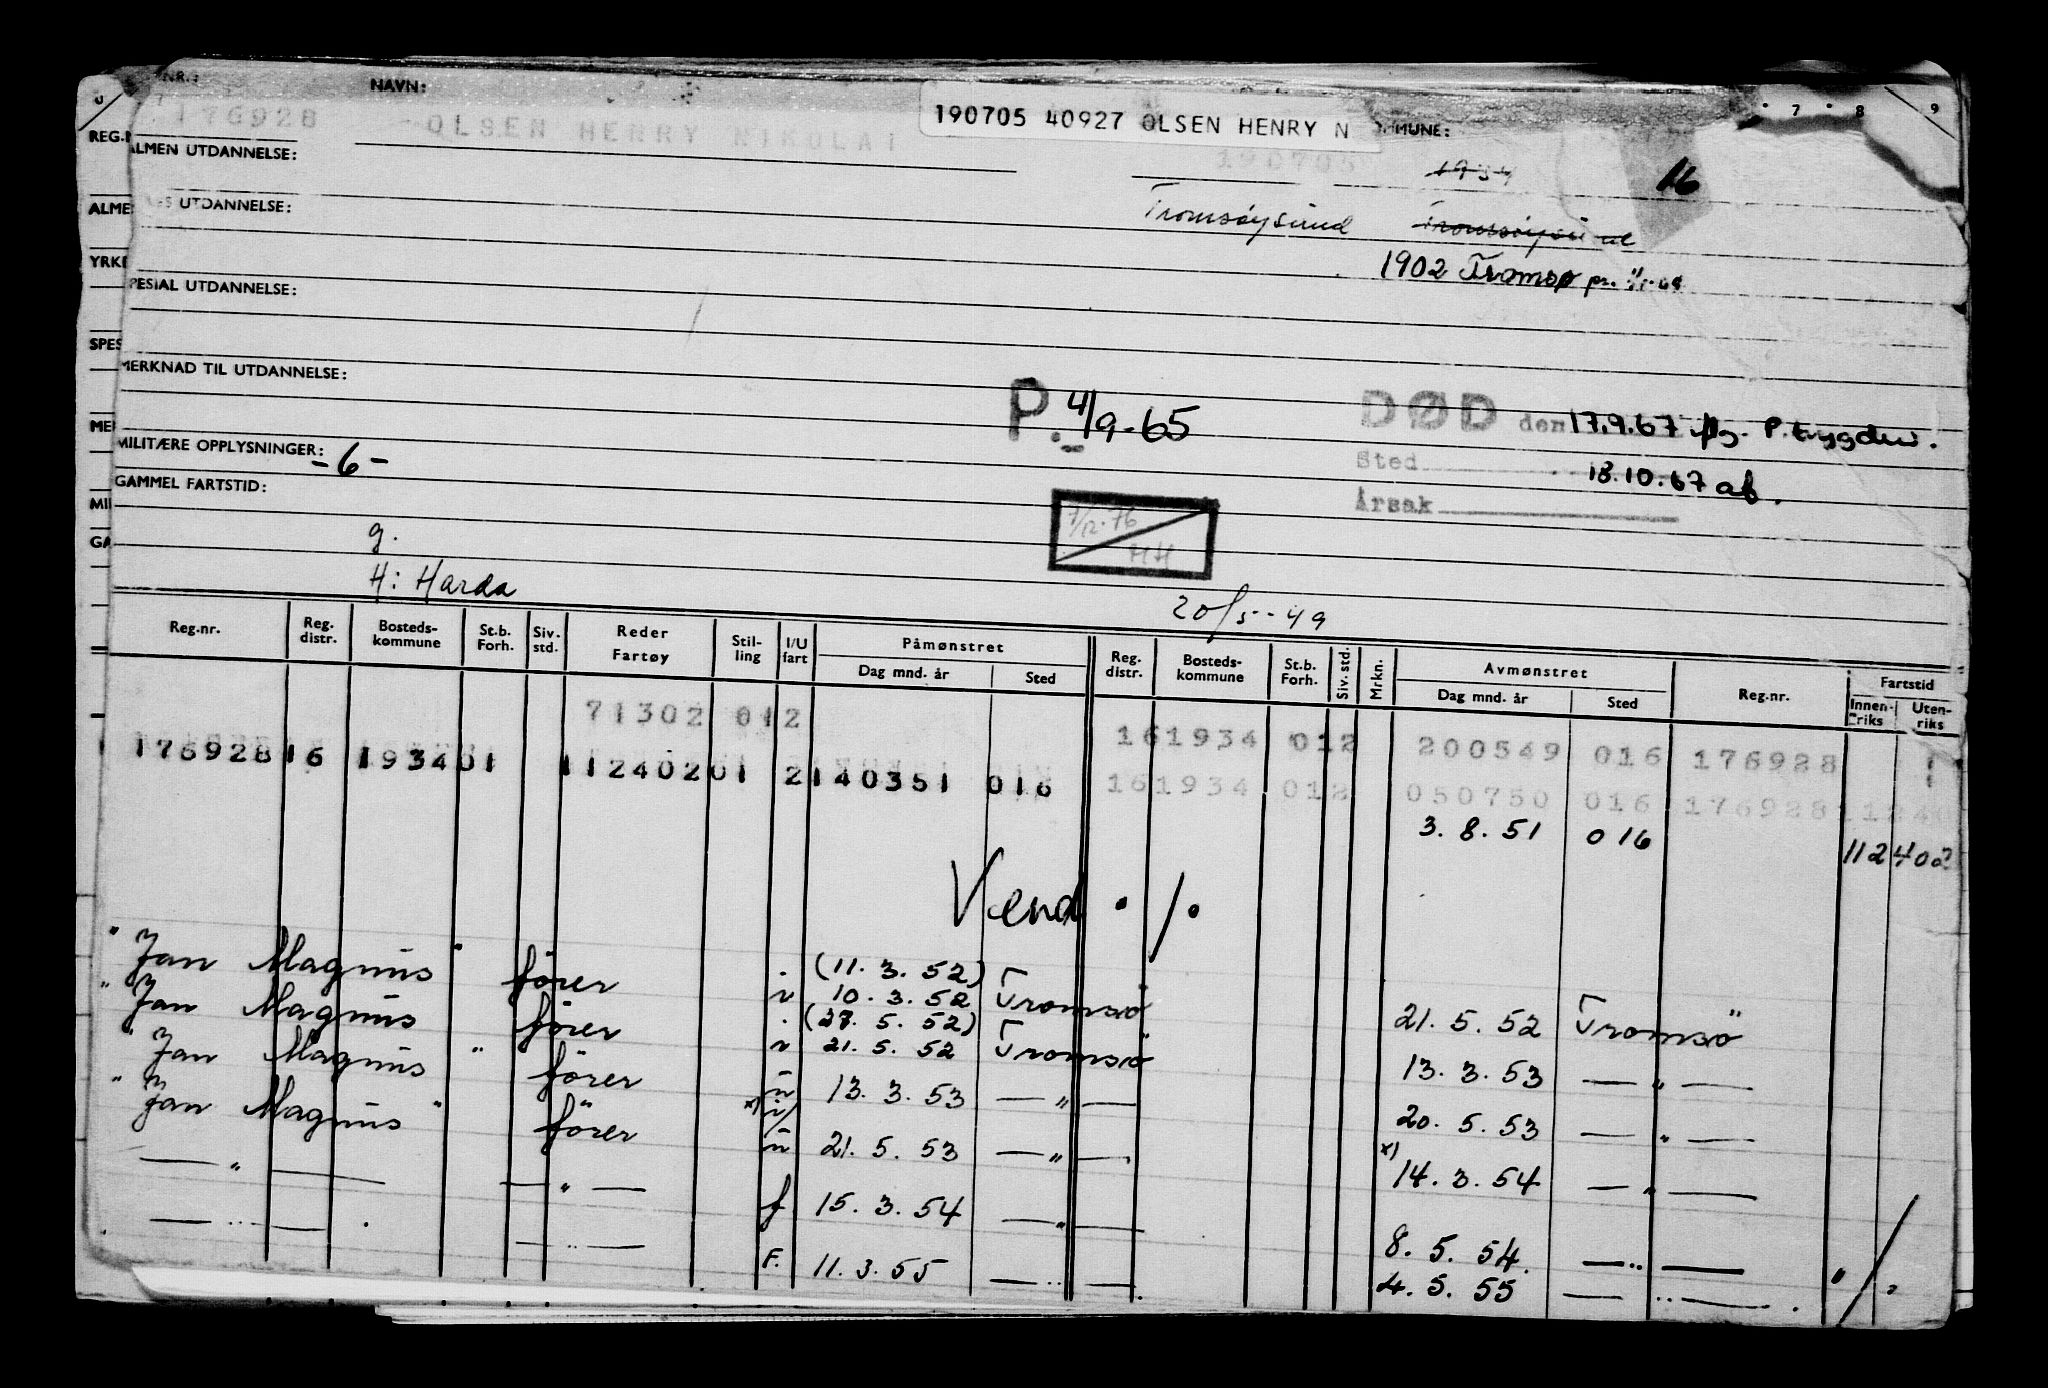 NR.: NAVN: MMUNE: 7 8 9
176928 OLSEN HENRY NIKOLAI 190705 40927 OLSEN HENRY N
190705 1934 16
REG.N
ALMEN UTDANNELSE:
Tromsøysund Tromsøysund
ALME ES UTDANNELSE:
1902 Tromsø pr.
YRKE
PESIAL UTDANNELSE:
SPES
MERKNAD TIL UTDANNELSE:
P. 4/9-65
DØD den 17.9.67 iflg. P.trygden.
ME
MILITÆRE OPPLYSNINGER: -6-
Sted 13.10.67 ab.
GAMMEL FARTSTID:
MIL
Årsak
7/12.76
HH
GA
g.
H: Harda
20/5-49
Reg.nr. Reg. distr. Bosteds-kommune St.b. Forh. Siv. std. Reder Fartøy Stil-ling I/U fart Påmønstret Dag mnd. år Sted Reg. distr. Bosteds-kommune St.b. Forh. Siv. std. Mrkn. Avmønstret Dag mnd. år Sted Reg.nr. Fartstid Innen-riks Uten-riks
71302 012 161934 012 200549 016 176928
176928 16 193401 11240201 2 140351 016 161934 012 050750 016 176928 11240
3.8.51 016 112402
Vend ./.
"Jan Magnus" fører i (11.3.52)
10.3.52 Tromsø 21.5.52 Tromsø
"Jan Magnus fører i (27.5.52)
21.5.52 Tromsø 13.3.53 — " —
Jan Magnus " fører u 13.3.53 — " — 20.5.53 — " —
"Jan Magnus" fører x) i/u 21.5.53 — " — x) 14.3.54 — " —
— " — — " — f 15.3.54 — " — 8.5.54. — " —
— " — . — " — F. 11.3.55 — " — 4.5.55 — " — . ./.